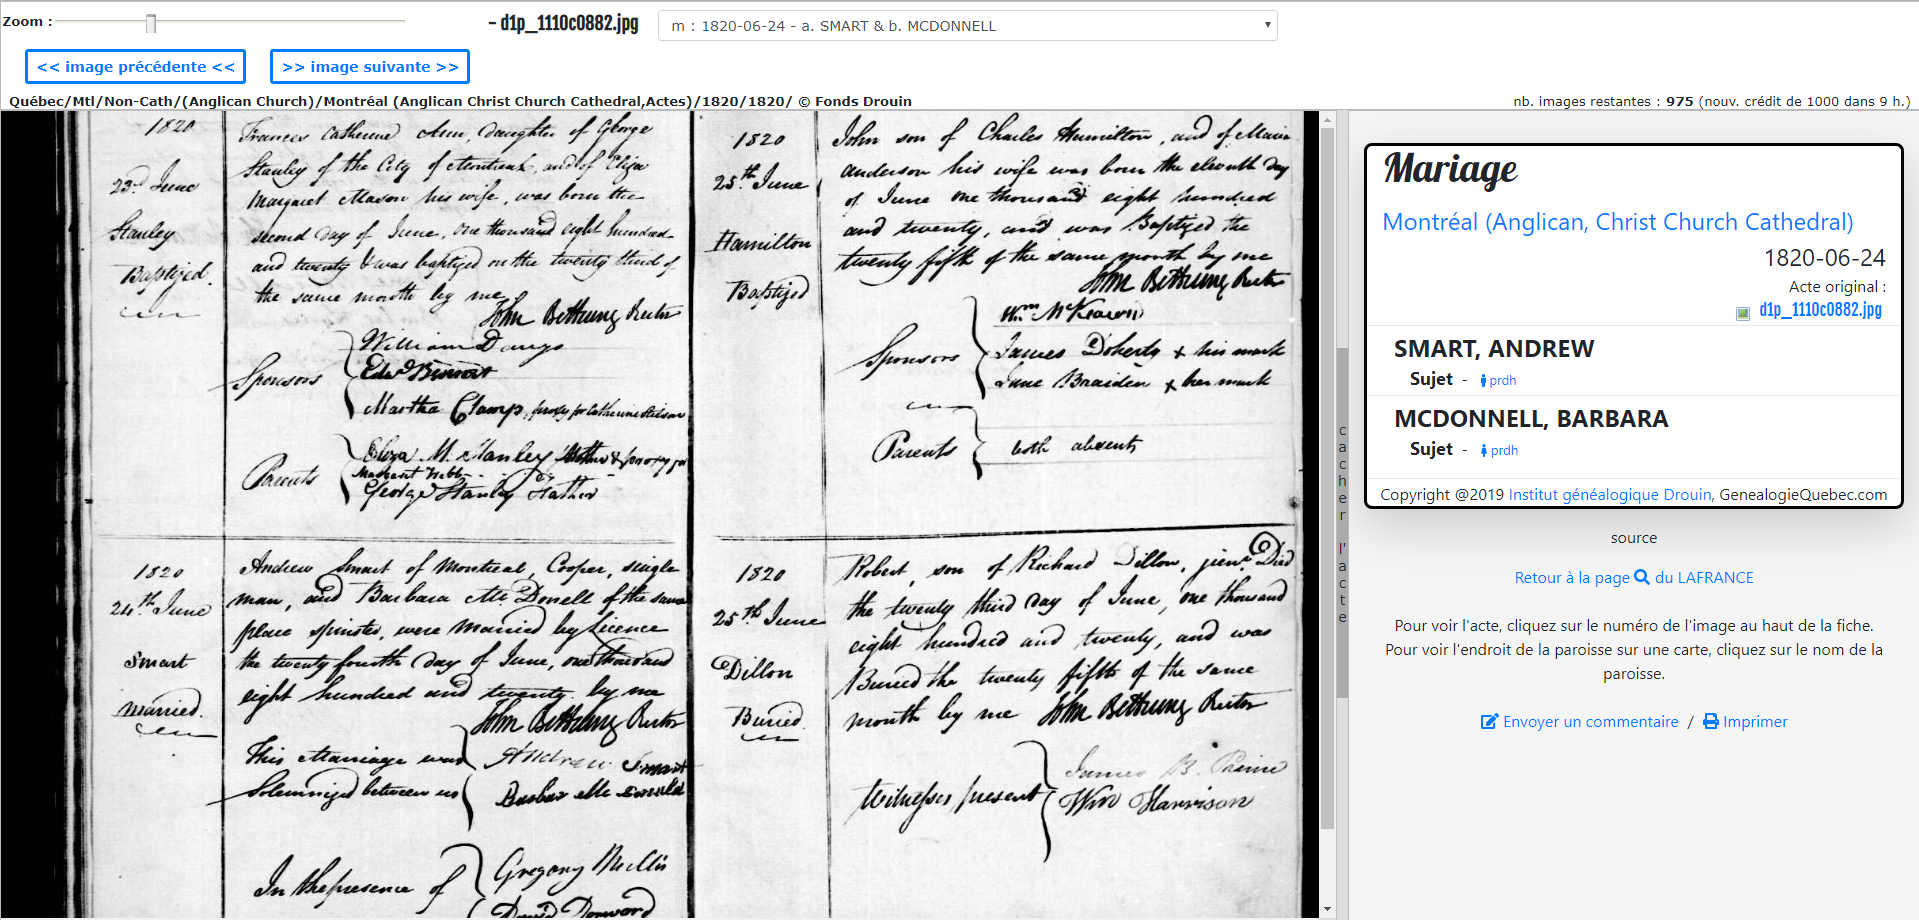 Zoom :
- d1p_1110c0882.jpg
m : 1820-06-24 - a. SMART & b. MCDONNELL
<< image précédente <<
>> image suivante >>
Québec/Mtl/Non-Cath/(Anglican Church)/Montréal (Anglican Christ Church Cathedral,Actes)/1820/1820/ © Fonds Drouin
nb. images restantes : 975 (nouv. crédit de 1000 dans 9 h.)
1820
23rd June
Stanley
Baptized.
Frances Catherine Ann, daughter of George
Stanley of the City of Montreal, and of Eliza
Margaret Mason his wife, was born the
second day of June, one thousand eight hundred
and twenty & was baptized on the twenty third of
the same month by me
John Bethune Rector
Sponsors
William Dawys
Martha Clamp, proxy for Catherine
Parents
Eliza M. Stanley Mother & proxy for
Margaret Webb
George Stanley Father
1820
24th June
Smart
Married.
Andrew Smart of Montreal, Cooper, single
man, and Barbara McDonell of the same
place spinster, were married by Licence
the twenty fourth day of June, one thousand
eight hundred and twenty. by me
John Bethune Rector
This Marriage was
Solemnized between us
Andrew Smart
Barbar Mc Donald
In the presence of
Gregory McMillis
David Donword
1820
25th June
Hamilton
Baptized
John son of Charles Hamilton, and of Maria
Anderson his wife was born the eleventh day
of June one thousand eight hundred
and twenty, and was Baptized the
twenty fifth of the same month by me
John Bethune Rector
Sponsors
Wm McKeown
James Doherty + his mark
Jane Braiden + her mark
Parents
both absents
1820
25th June
Dillon
Buried
Robert, son of Richard Dillon, junr Died
the twenty third day of June, one thousand
eight hundred and twenty, and was
Buried the twenty fifth of the same
month by me John Bethune Rector
Witnesses present
James B.
Wm Harrison
cacher l'acte
Mariage
Montréal (Anglican, Christ Church Cathedral)
1820-06-24
Acte original :
d1p_1110c0882.jpg
SMART, ANDREW
Sujet - prdh
MCDONNELL, BARBARA
Sujet - prdh
Copyright @2019 Institut généalogique Drouin, GenealogieQuebec.com
source
Retour à la page du LAFRANCE
Pour voir l'acte, cliquez sur le numéro de l'image au haut de la fiche.
Pour voir l'endroit de la paroisse sur une carte, cliquez sur le nom de la
paroisse.
Envoyer un commentaire / Imprimer